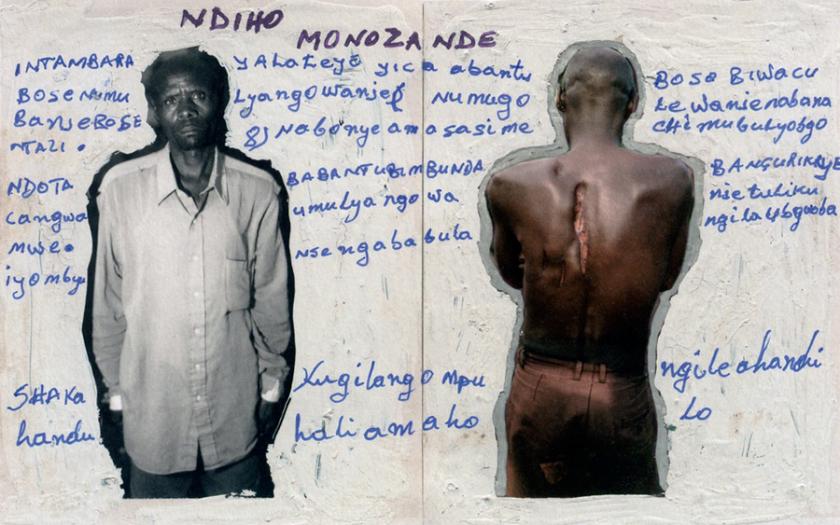 NDIHO
MONOZA NDE
INTAMBARA
BOSE NUMU
BANSEBOSE
NTAZI.
NDOTA
cangwa
mwe.
iyo mbu
SHAKA
handu
YALALEYE yic a abantu
Lyangowanje NUMUGO
Nabonye am asasi me
BABANTUBIMBUNDA
umulya ngo wa
nse ngaba bula
Kugilango mpu
hali amaho
BOSE BIWACU
Le wanienabana
chimubulyobgo
BANGURIKIYE
nietuliku
ngilaubgooba
ngileahandi
lo